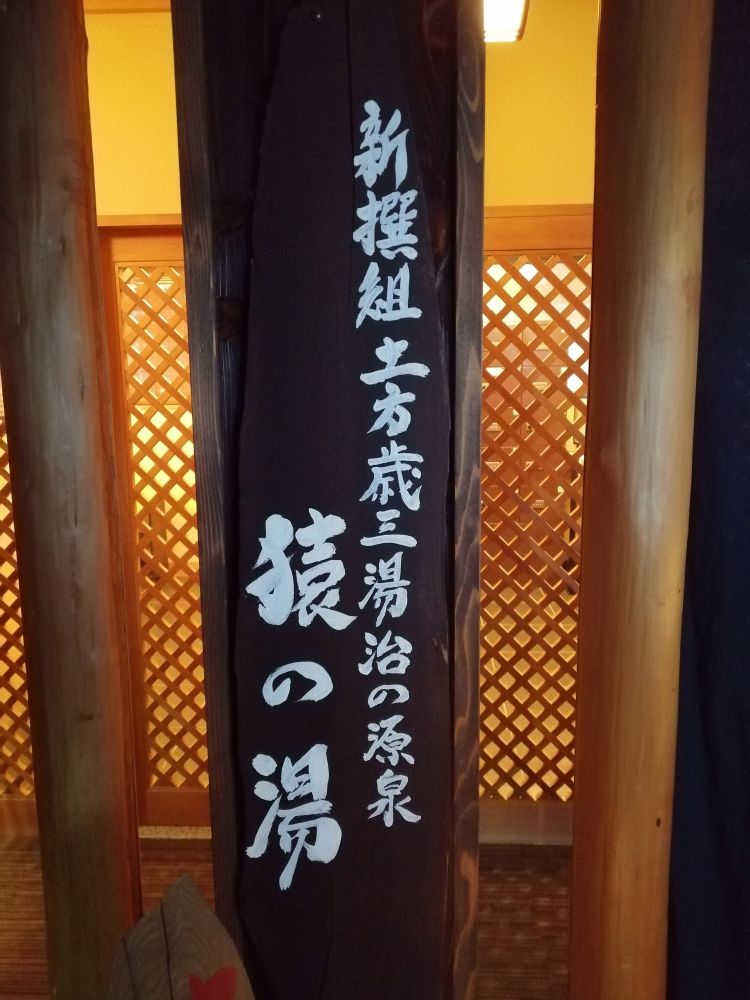 新撰組土方歳三湯治の源泉
猿の湯